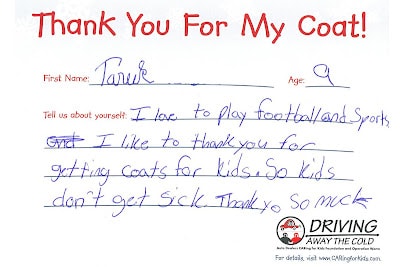 Thank You For My Coat!
First Name: Tarik Age: 9
Tell us about yourself: I love to play football and Sports
and I like to thank you for
getting coats for kids. So kids
don't get sick. Thank yo so much
DRIVING
AWAY THE COLD
Auto Dealers CARing for Kids Foundation and Operation Warm
For details, visit www.CARingforKids.org